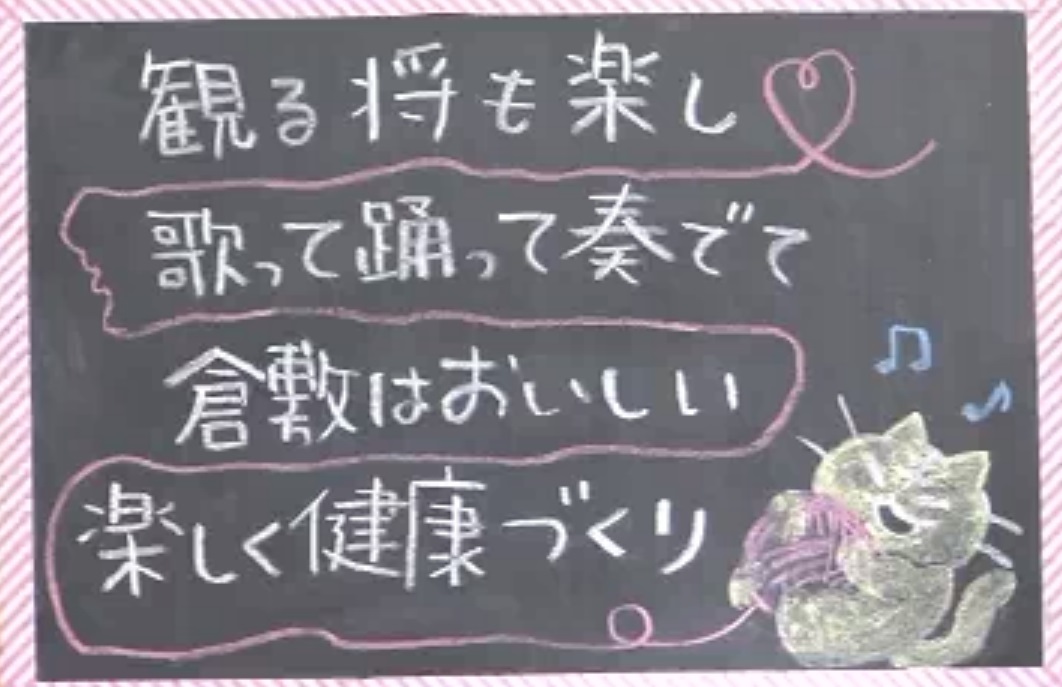 観る将も楽し
歌って踊って奏でて
倉敷はおいしい
楽しく健康づくり